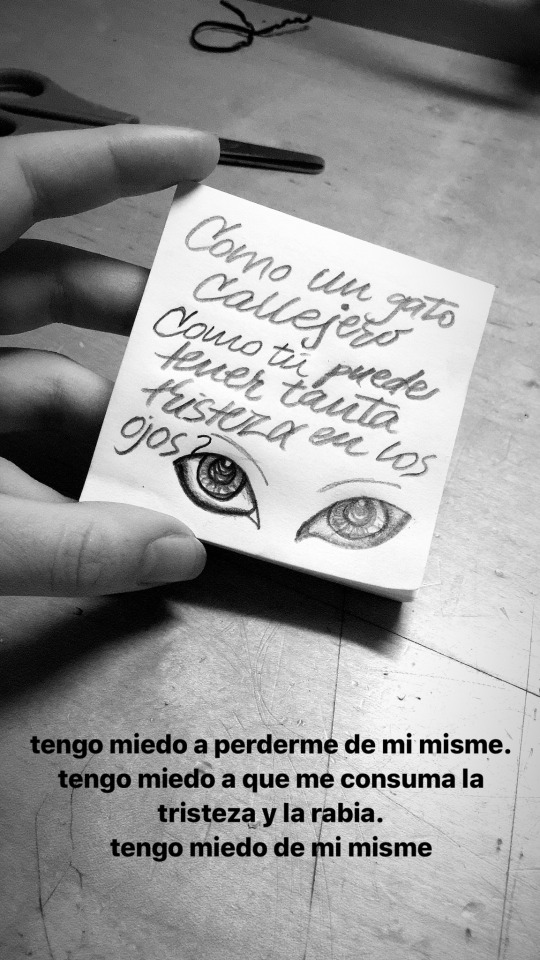 Como un gato
callejero
Como tú puede
tener tanta
tristeza en los
ojos?
tengo miedo a perderme de mi misme.
tengo miedo a que me consuma la
tristeza y la rabia.
tengo miedo de mi misme